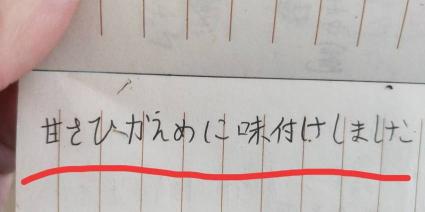 甘さひかえめに味付けしました